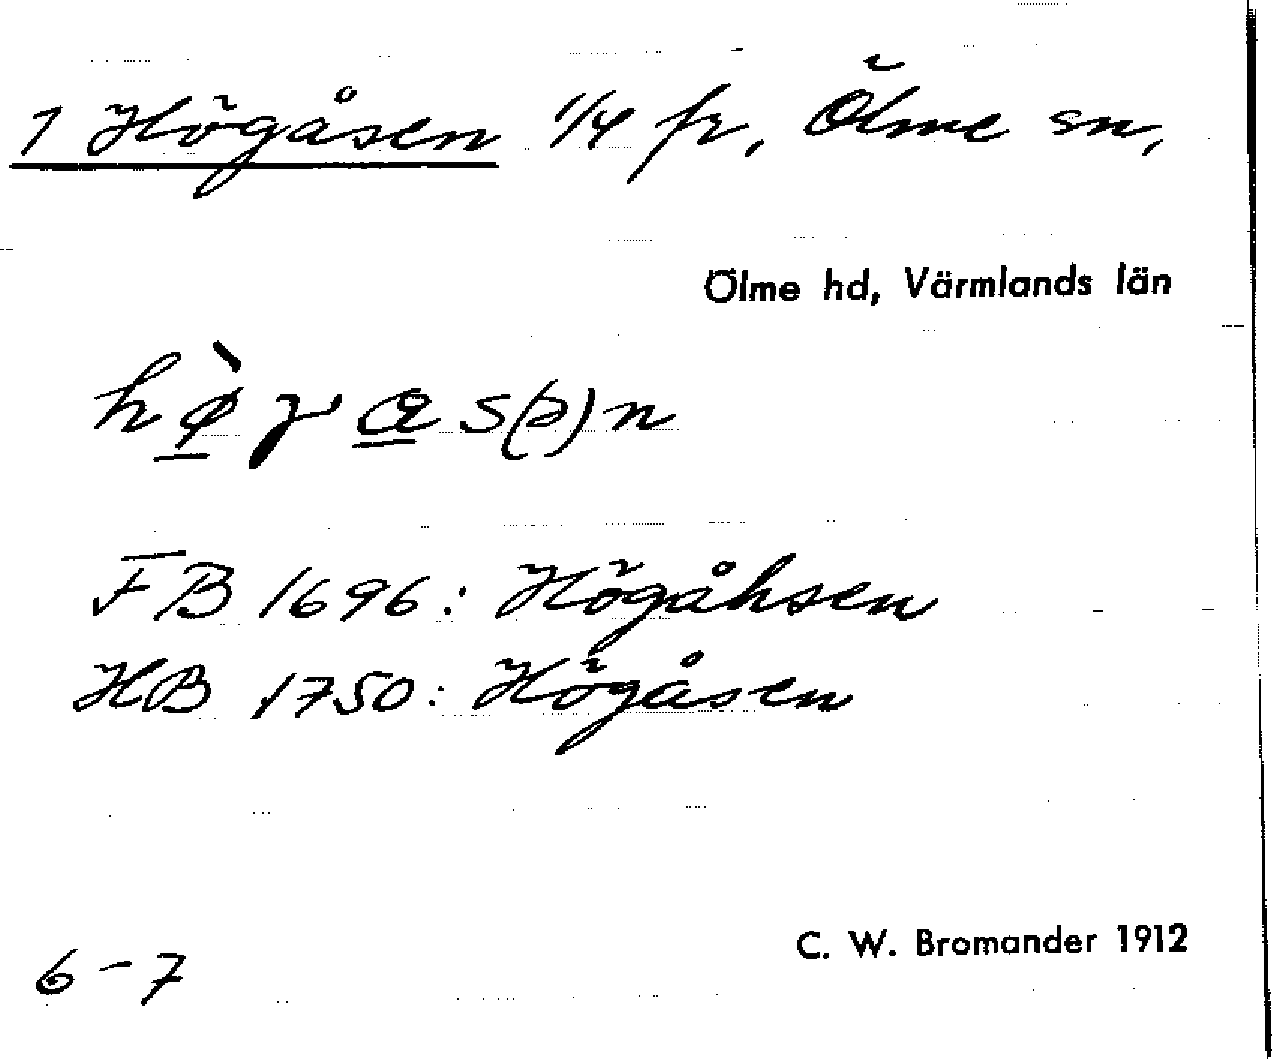 1 Högåsen 1/4 fr, Ölme sn,
Ölme hd, Värmlands län
hø̀γas(ə)n
FB 1696: Högåhsen
HB 1750: Högåsen
C. W. Bromander 1912
6-7